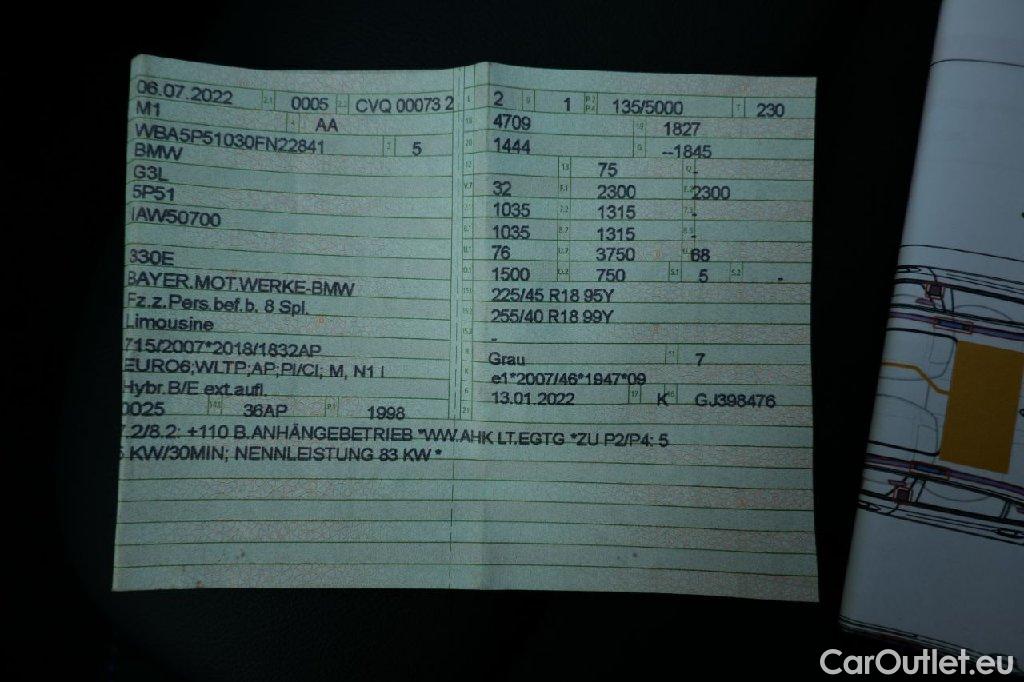 06.07.2022 0005 CVQ 00073 2
M1 AA
WBA5P51030FN22841 5
BMW
G3L
5P51
IAW50700
330E
BAYER.MOT.WERKE-BMW
Fz.z.Pers.bef.b. 8 Spl.
Limousine
715/2007*2018/1832AP
EURO6;WLTP;AP;PI/CI; M, N1 I
Hybr.B/E ext.aufl.
0025 36AP 1998
2 1 135/5000 230
4709 1827
1444 --1845
75 -
32 2300 2300
1035 1315 -
1035 1315 -
76 3750 68
1500 750 5 -
225/45 R18 95Y
255/40 R18 99Y
-
Grau 7
e1*2007/46*1947*09
13.01.2022 K GJ398476
7.2/8.2: +110 B.ANHÄNGEBETRIEB *WW.AHK LT.EGTG *ZU P2/P4: 5
KW/30MIN; NENNLEISTUNG 83 KW *
CarOutlet.eu